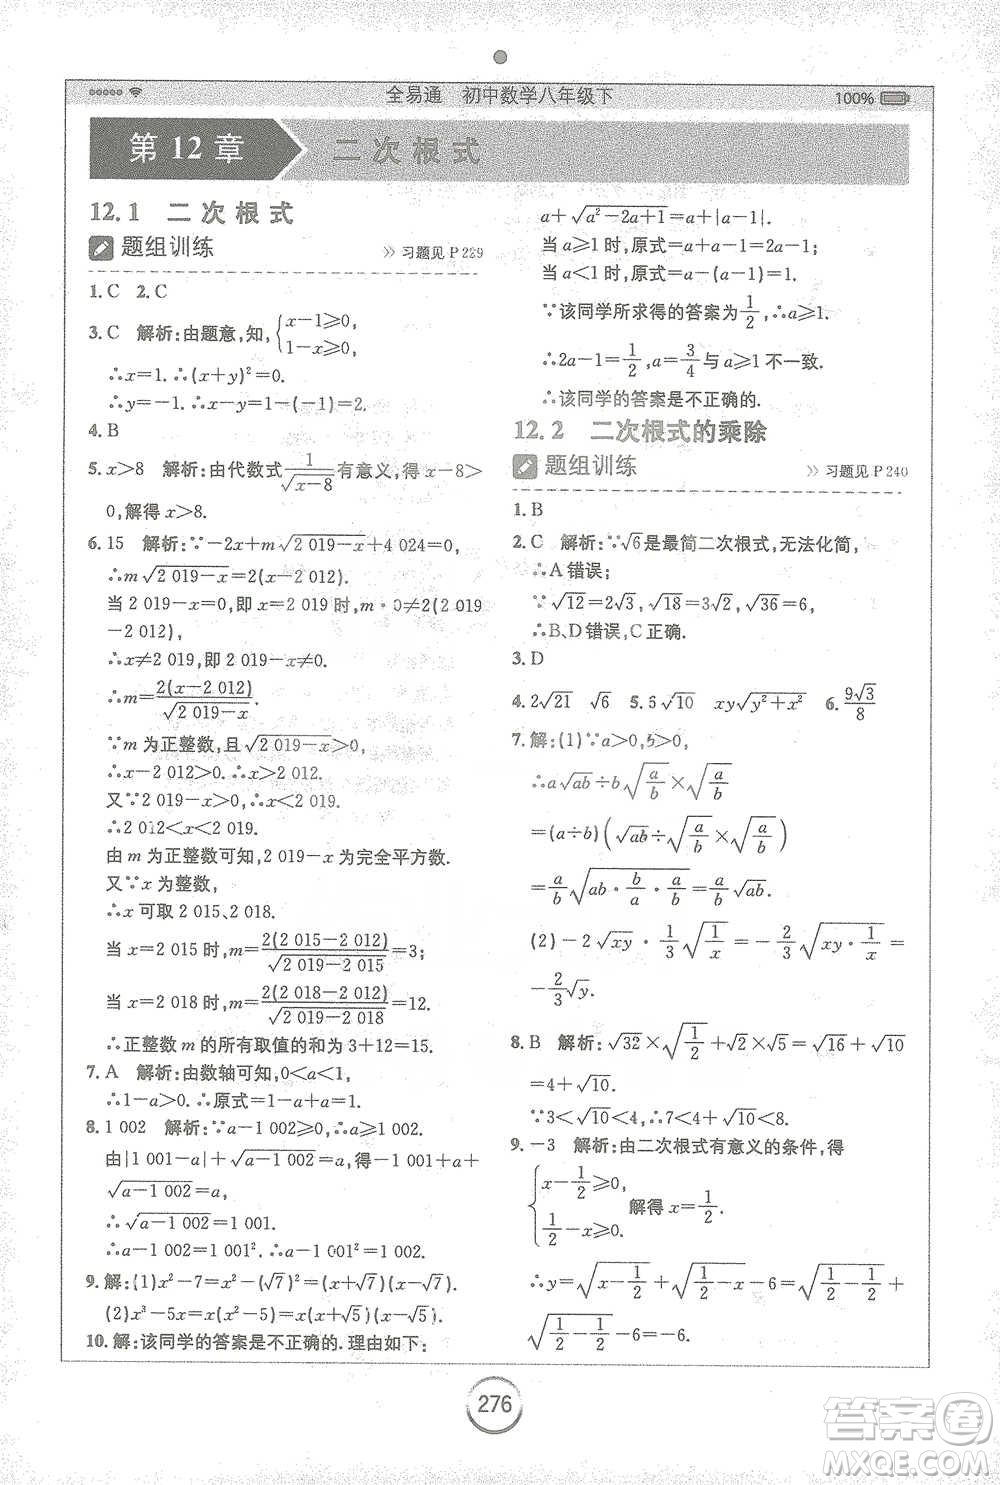 全易通 初中数学八年级下
100%
第 12 章 二次根式
12.1 二次根式
题组训练 》习题见 P 229
1. C 2. C
3. C 解析:由题意,知, {x-1≥0, 1-x≥0,
∴x=1. ∴(x+y)²=0.
∴y=-1. ∴x-y=1-(-1)=2.
4. B
5. x>8 解析:由代数式 1/√(x-8) 有意义,得 x-8>
0,解得 x>8.
6. 15 解析:∵-2x+m√(2 019-x)+4 024=0,
∴m√(2 019-x)=2(x-2 012).
当 2 019-x=0,即 x=2 019 时,m·0≠2(2 019
-2 012),
∴x≠2 019,即 2 019-x≠0.
∴m=2(x-2 012)/√(2 019-x).
∵m 为正整数,且√(2 019-x)>0,
∴x-2 012>0,∴x>2 012.
又∵2 019-x>0,∴x<2 019.
∴2 012<x<2 019.
由 m 为正整数可知,2 019-x 为完全平方数.
又∵x 为整数,
∴x 可取 2 015、2 018.
当 x=2 015 时,m=2(2 015-2 012)/√(2 019-2 015)=3;
当 x=2 018 时,m=2(2 018-2 012)/√(2 019-2 018)=12.
∴正整数 m 的所有取值的和为 3+12=15.
7. A 解析:由数轴可知,0<a<1,
∴1-a>0. ∴原式=1.
8. 1 002 解析:∵a-1 002≥0,∴a≥1 002.
由|1 001-a|+√(a-1 002)=a,得-1 001+a+
√(a-1 002)=a,
∴√(a-1 002)=1 001.
∴a-1 002=1 001². ∴a-1 001²=1 002.
9. 解:(1)x²-7=x²-(√7)²=(x+√7)(x-√7).
(2)x³-5x=x(x²-5)=x(x+√5)(x-√5).
10. 解:该同学的答案是不正确的. 理由如下:
a+√(a²-2a+1)=a+|a-1|.
当 a≥1 时,原式=a+a-1=2a-1;
当 a<1 时,原式=a-a+1=1.
∵该同学所求得的答案为 1/2,∴a≥1.
∴2a-1=1/2,a=3/4 与 a≥1 不一致.
∴该同学的答案是不正确的.
12.2 二次根式的乘除
题组训练 》习题见 P 240
1. B
2. C 解析:∵√6是最简二次根式,无法化简,
∴A 错误;
∵√12=2√3,√18=3√2,√36=6,
∴B、D 错误,C 正确.
3. D
4. 2√21 √6 5. 5√10 xy√(y²+x²) 6. 9√3/8
7. 解:(1)∵a>0,b>0,
∴a√(ab)÷b√(a/b)×√(a/b)
=(a÷b)(√(ab)÷√(a/b)×√(a/b))
=a/b√(ab·b/a·a/b)=a/b√(ab).
(2)-2√(xy)·1/3√(1/x)=-2/3√(xy·1/x)=
-2/3√y.
8. B 解析:√32×√(1/2)+√2×√5=√16+√10
=4+√10.
∵3<√10<4,∴7<4+√10<8.
9. -3 解析:由二次根式有意义的条件,得
{x-1/2≥0, 1/2-x≥0, 解得 x=1/2.
∴y=√(x-1/2)+√(1/2-x)-6=√(1/2-1/2)+
√(1/2-1/2)-6=-6.
276
答案卷
MXQE.COM